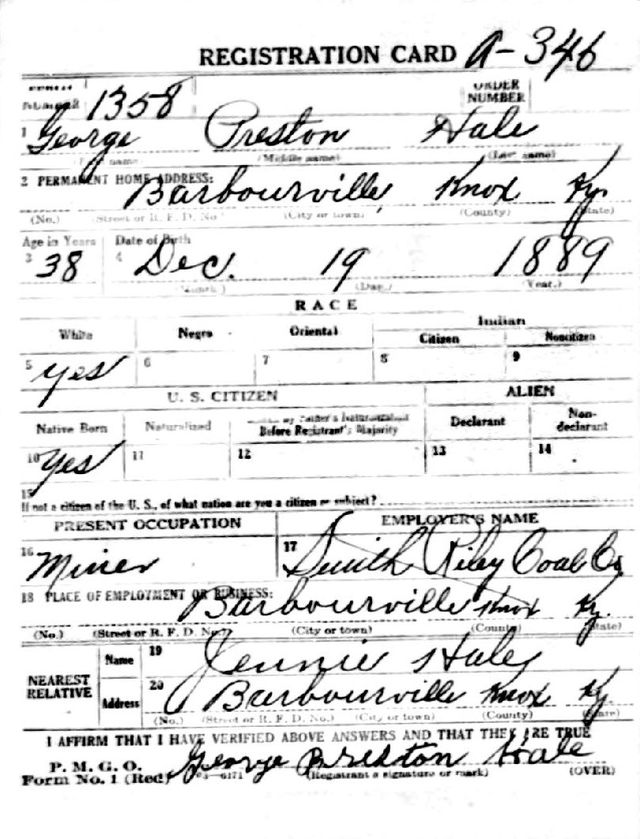 REGISTRATION CARD A-346
SERIAL NUMBER 1358 ORDER NUMBER
1 George Preston Hale
(First name) (Middle name) (Last name)
2 PERMANENT HOME ADDRESS:
Barbourville Knox Ky.
(No.) (Street or R. F. D. No.) (City or town) (County) (State)
Age in Years Date of Birth
3 38 4 Dec. 19 1889
(Month.) (Day.) (Year.)
RACE
White Negro Oriental Indian
Citizen Noncitizen
5 yes 6 7 8 9
U. S. CITIZEN ALIEN
Native Born Naturalized Citizen by Father's Naturalization Before Registrant's Majority Declarant Non-declarant
10 yes 11 12 13 14
15
If not a citizen of the U. S., of what nation are you a citizen or subject?
PRESENT OCCUPATION EMPLOYER'S NAME
16 Miner 17 Smith Riley Coal Co
18 PLACE OF EMPLOYMENT OR BUSINESS:
Barbourville Knox Ky.
(No.) (Street or R. F. D. No.) (City or town) (County) (State)
NEAREST RELATIVE Name 19 Jennie Hale
Address 20 Barbourville Knox Ky
(No.) (Street or R. F. D. No.) (City or town) (County) (State)
I AFFIRM THAT I HAVE VERIFIED ABOVE ANSWERS AND THAT THEY ARE TRUE
P. M. G. O.
Form No. 1 (Red) 3-6171 George Preston Hale
(Registrant's signature or mark) (OVER)